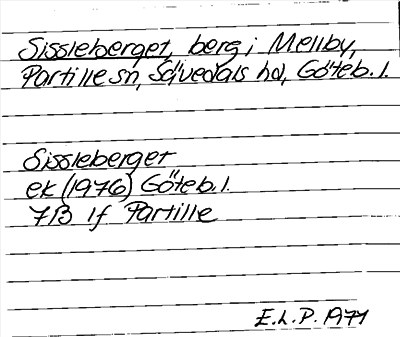 Sissleberget, berg i Mellby,
Partille sn, Sävedals hd, Göteb. l.
Sissleberget
ek (1976) Göteb. l.
7B 1f Partille
E.L.P. 1977